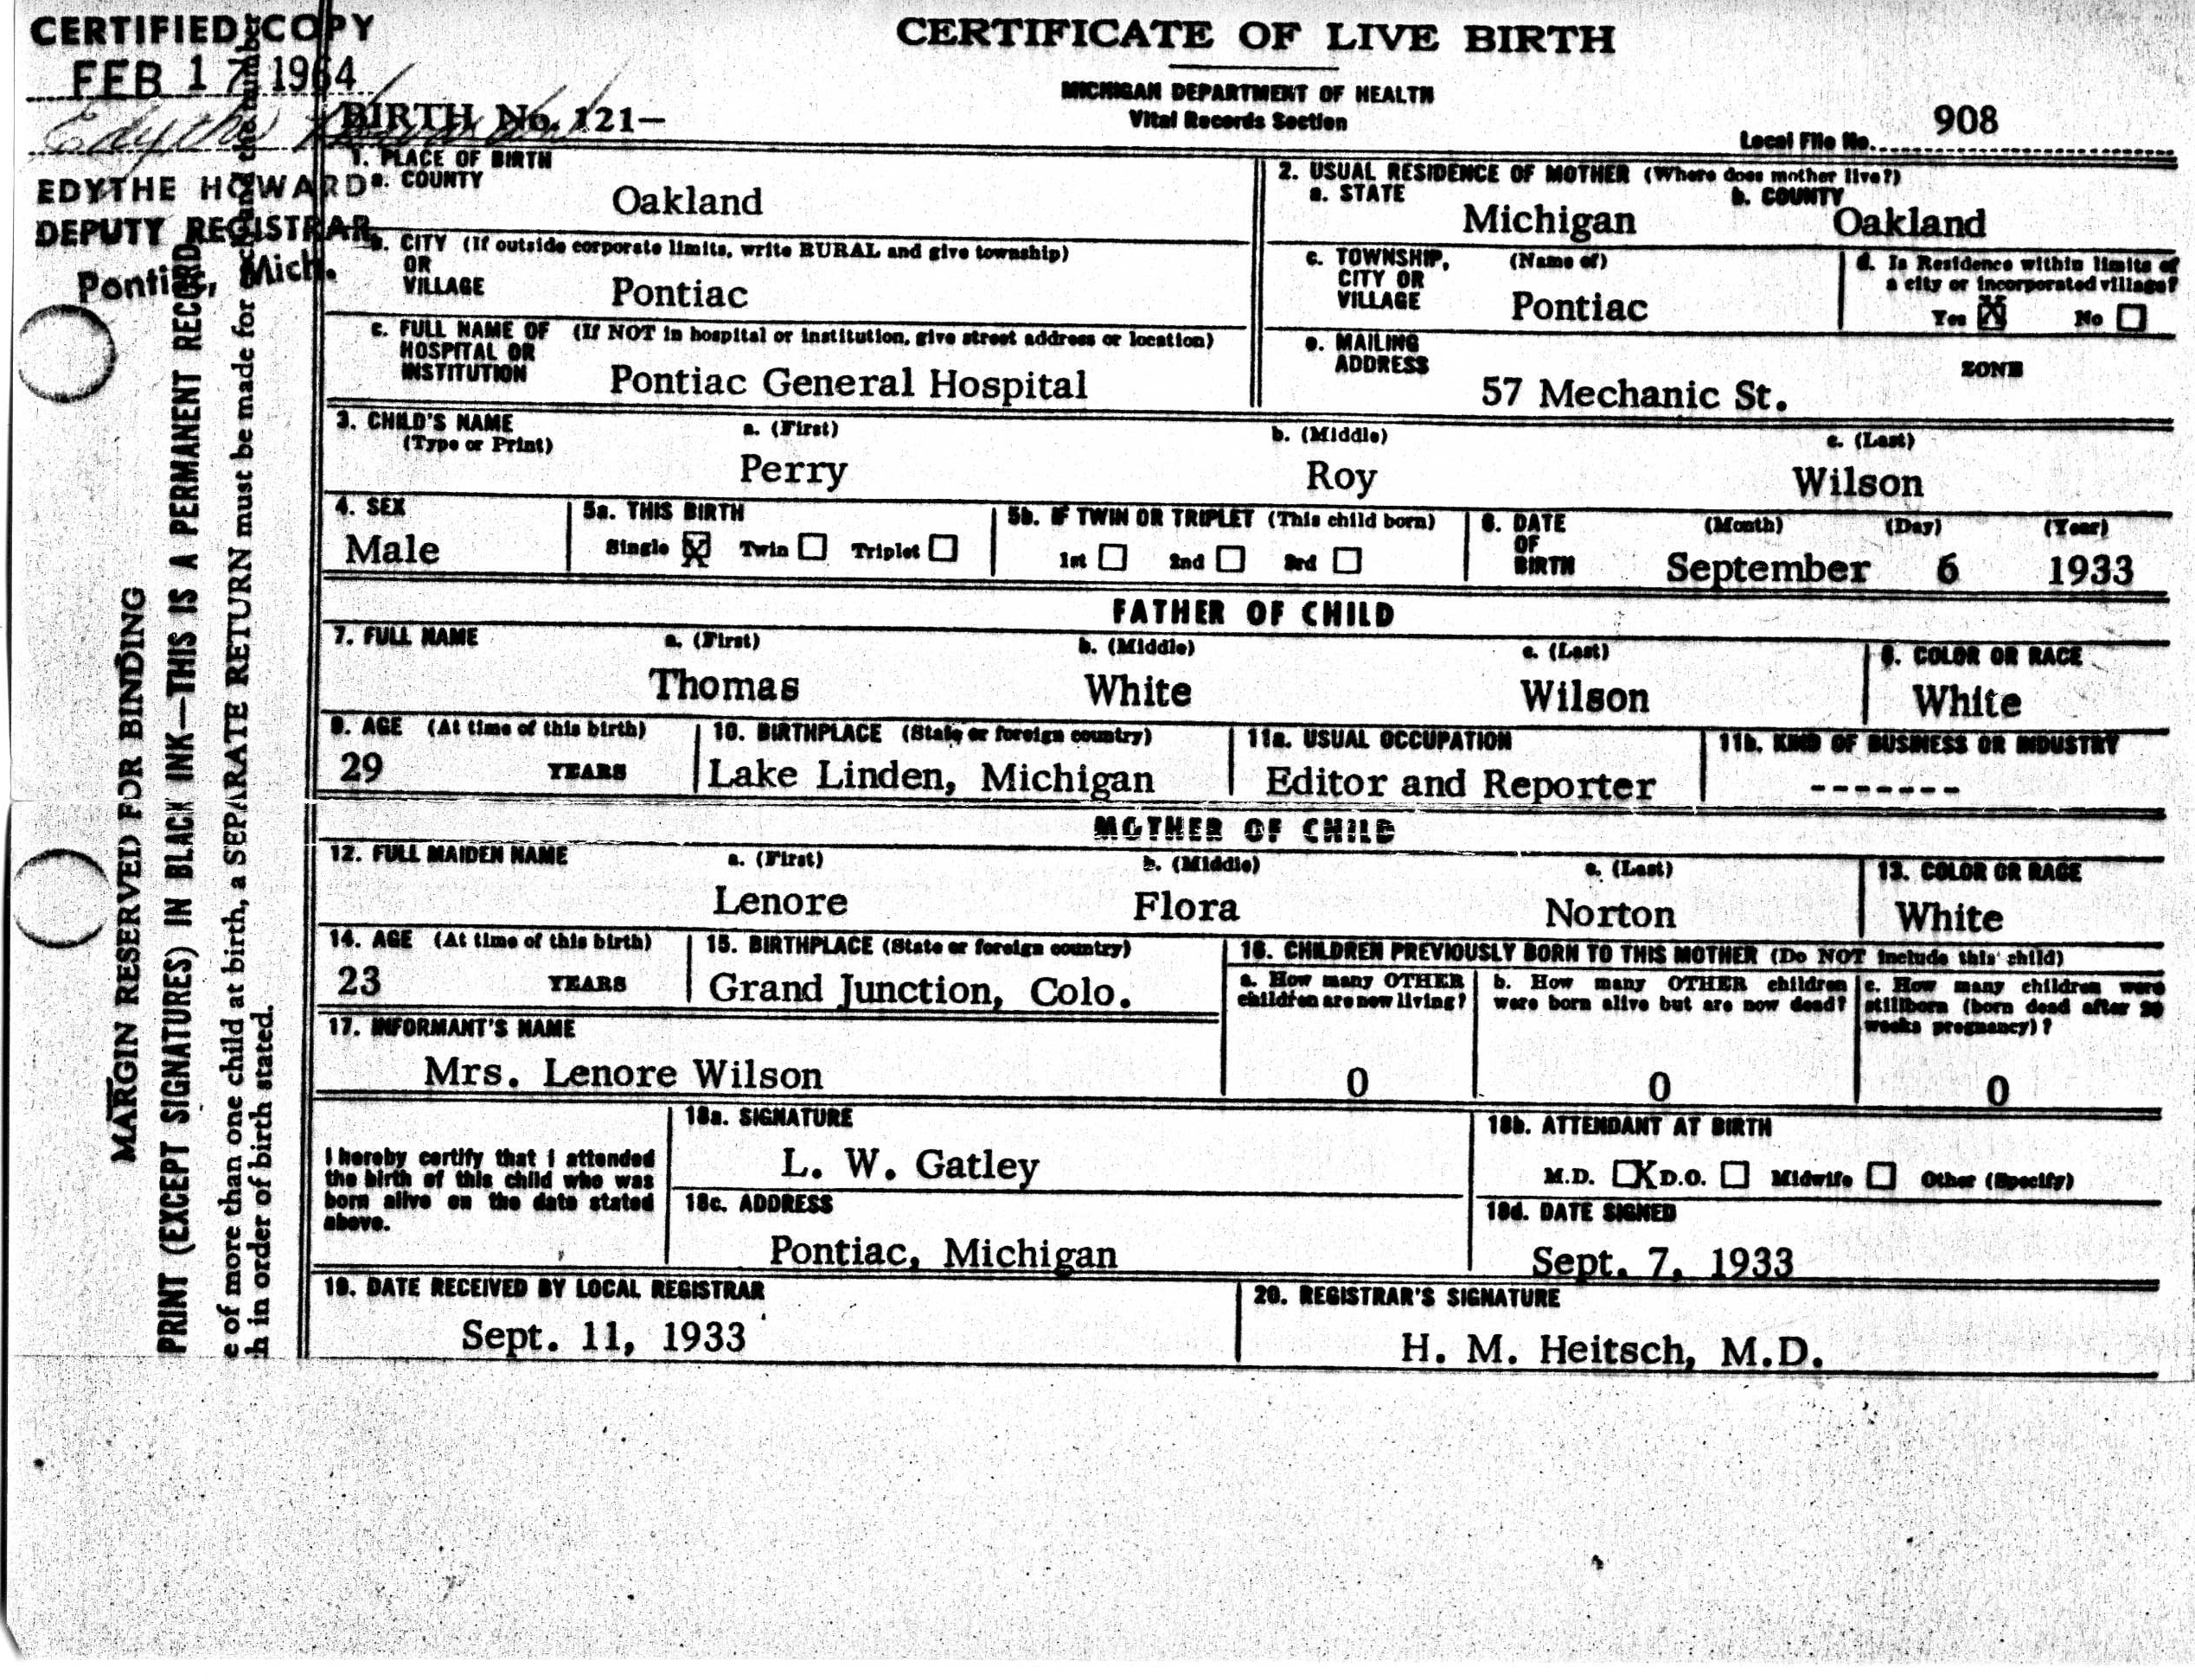 CERTIFIED COPY
FEB 17 1964
EDYTHE HOWARD
DEPUTY REGISTRAR
Pontiac, Mich.
MARGIN RESERVED FOR BINDING
PRINT (EXCEPT SIGNATURES) IN BLACK INK—THIS IS A PERMANENT RECORD
e of more than one child at birth, a SEPARATE RETURN must be made for each and the number
h in order of birth stated.
CERTIFICATE OF LIVE BIRTH
MICHIGAN DEPARTMENT OF HEALTH
Vital Records Section
BIRTH No. 121—
Local File No. 908
1. PLACE OF BIRTH
a. COUNTY
Oakland
b. CITY (If outside corporate limits, write RURAL and give township)
OR
VILLAGE
Pontiac
c. FULL NAME OF (If NOT in hospital or institution, give street address or location)
HOSPITAL OR
INSTITUTION
Pontiac General Hospital
2. USUAL RESIDENCE OF MOTHER (Where does mother live?)
a. STATE b. COUNTY
Michigan Oakland
c. TOWNSHIP, (Name of)
CITY OR
VILLAGE
Pontiac
d. Is Residence within limits of
a city or incorporated village?
Yes X No
e. MAILING ZONE
ADDRESS
57 Mechanic St.
3. CHILD'S NAME a. (First) b. (Middle) c. (Last)
(Type or Print)
Perry Roy Wilson
4. SEX
Male
5a. THIS BIRTH
Single X Twin Triplet
5b. IF TWIN OR TRIPLET (This child born)
1st 2nd 3rd
6. DATE (Month) (Day) (Year)
OF
BIRTH
September 6 1933
FATHER OF CHILD
7. FULL NAME a. (First) b. (Middle) c. (Last)
Thomas White Wilson
8. COLOR OR RACE
White
9. AGE (At time of this birth)
29 YEARS
10. BIRTHPLACE (State or foreign country)
Lake Linden, Michigan
11a. USUAL OCCUPATION
Editor and Reporter
11b. KIND OF BUSINESS OR INDUSTRY
-------
MOTHER OF CHILD
12. FULL MAIDEN NAME a. (First) b. (Middle) c. (Last)
Lenore Flora Norton
13. COLOR OR RACE
White
14. AGE (At time of this birth)
23 YEARS
15. BIRTHPLACE (State or foreign country)
Grand Junction, Colo.
16. CHILDREN PREVIOUSLY BORN TO THIS MOTHER (Do NOT include this child)
a. How many OTHER
children are now living?
0
b. How many OTHER children
were born alive but are now dead?
0
c. How many children were
stillborn (born dead after 20
weeks pregnancy)?
0
17. INFORMANT'S NAME
Mrs. Lenore Wilson
I hereby certify that I attended
the birth of this child who was
born alive on the date stated
above.
18a. SIGNATURE
L. W. Gatley
18b. ATTENDANT AT BIRTH
M.D. X D.O. Midwife Other (Specify)
18c. ADDRESS
Pontiac, Michigan
18d. DATE SIGNED
Sept. 7, 1933
19. DATE RECEIVED BY LOCAL REGISTRAR
Sept. 11, 1933
20. REGISTRAR'S SIGNATURE
H. M. Heitsch, M.D.